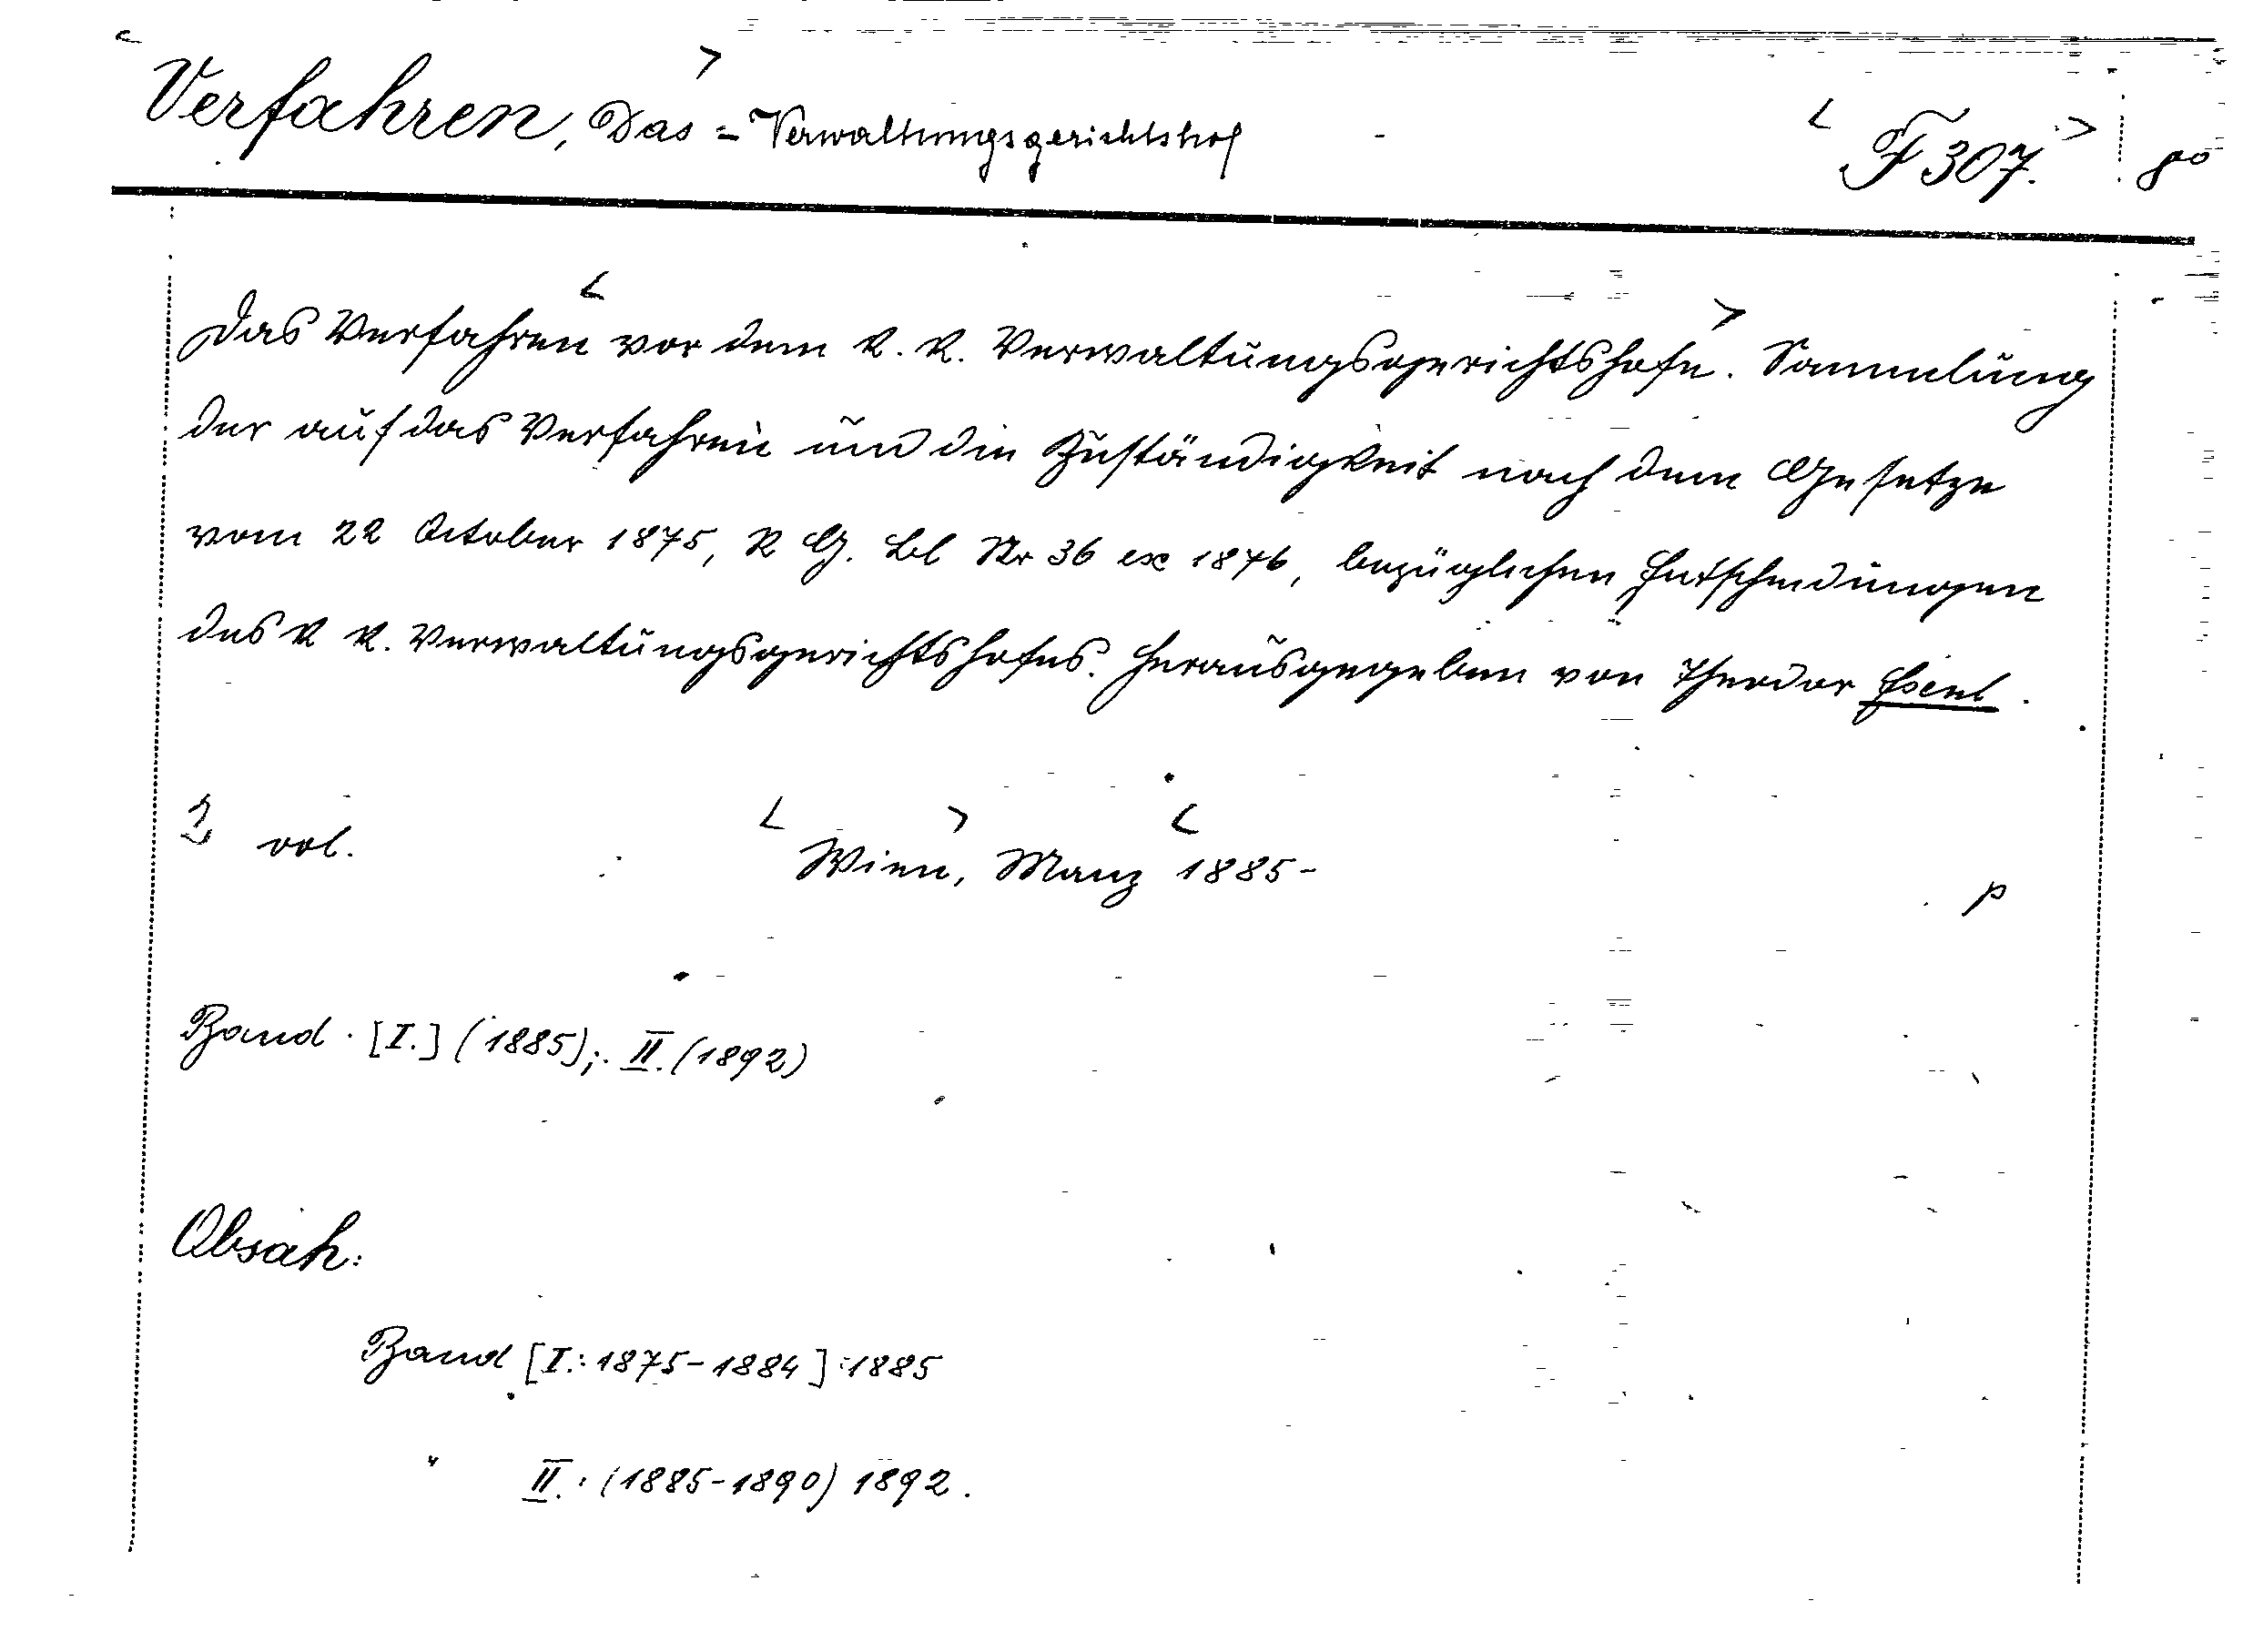 Verfahren, Das = Verwaltungsgerichtshof < F 307. > 8°
Das Verfahren vor dem k. k. Verwaltungsgerichtshofe. Sammlung
der auf das Verfahren und die Zuständigkeit nach dem Gesetze
vom 22 October 1875, R G. Bl Nr 36 ex 1876, bezüglichen Entscheidungen
des k k. Verwaltungsgerichtshofes. Herausgegeben von Theodor Exel.
2 vol. Wien, Manz 1885-
p
Band [I.] (1885); II. (1892)
Obsah:
Band [I.: 1875-1884] :1885
" II. : (1885-1890) 1892.